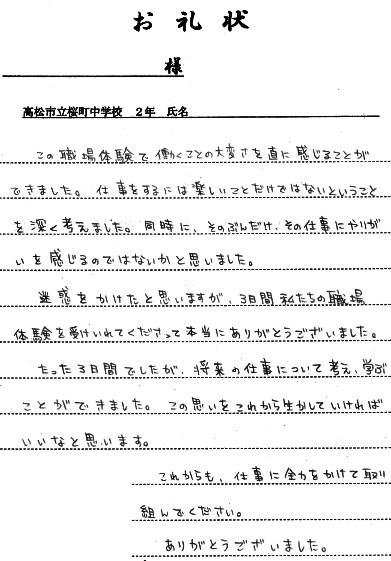 お礼状
様
高松市立桜町中学校 2年 氏名
この職場体験で働くことの大変さを直に感じることが
できました。仕事をするには楽しいことだけではないということ
を深く考えました。同時に、そのぶんだけ、その仕事にやりが
いを感じるのではないかと思いました。
迷惑をかけたと思いますが、3日間私たちの職場
体験を受けいれてくださって本当にありがとうございました。
たった3日間でしたが、将来の仕事について考え、学ぶ
ことができました。この思いをこれから生かしていければ
いいなと思います。
これからも、仕事に全力をかけて取り
組んでください。
ありがとうございました。